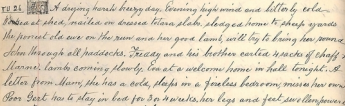 TU 26 A drizzling horrid breezy day. Evening high wind and bitterly cold.
at shed, mailed on dressed totara slab, sledged home to sheep yards
the poorest old ewe on the run and her good lamb, will try to bring her round,
John through all paddocks. Freddy and his brother carted 4 sacks of chaff
Marne. lambs coming slowly. Eva at a welcome home in hall tonight. A
letter from Mum, she has a cold, sleeps in a fireless bedroom, misses her own
Poor Gert has to stay in bed for 3 or 4 weeks, her legs and feet swollen,